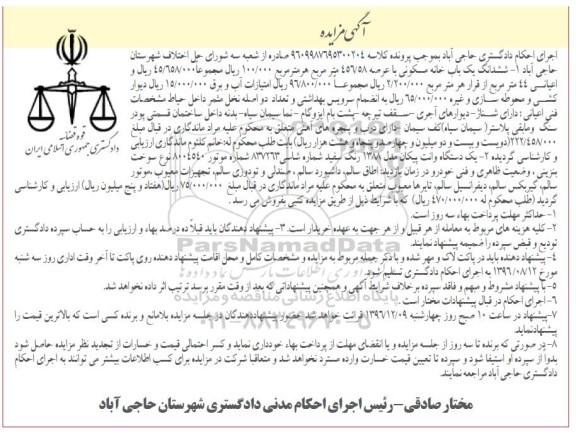 آگهی مزایده
اجرای احکام دادگستری حاجی آباد بموجب پرونده کلاسه ۹۶۰۹۹۸۷۶۹۵۳۰۰۲۰۴ صادره از شعبه سه شورای حل اختلاف شهرستان
حاجی آباد ۱- ششدانگ یک باب خانه مسکونی با عرصه ۴۵۶/۵۸ متر مربع هرمترمربع ۱۰۰/۰۰۰ ریال مجموعا۴۵/۶۵۸/۰۰۰ ریال و
اعیانی ۴۴ متر مربع از قرار هر متر مربع ۲/۲۰۰/۰۰۰ ریال مجموعـا ۹۶/۸۰۰/۰۰۰ ریال امتیازات آب و برق ۱۵/۰۰۰/۰۰۰ ریال دیوار
کشی و محوطه سازی و غیره ۶۵/۰۰۰/۰۰۰ ریال به انضمام سرویس بهداشتی و تعداد دو اصله نخل مثمر داخل حیاط مشخصات
فنی اعیانی : دارای شناژ- دیوارهای آجری – سقف تیرچه- پشت بام ایزوگام - نما سیمان سیاه- بدنه داخل ساختمان قسمتی پودر
سنگ ومابقی پلاستر( سیمان سیاه)کف سیمان -دارای درب و پنجره های آهنی متعلق به محکوم علیه مراد ماندگاری در قبال مبلغ
۲۲۲/۴۵۸/۰۰۰(دویست و بیست و دو میلیون و چهارصد و پنجاه و هشت هزار ریال) بابت طلب محکوم له:خانم کلثوم ماندگاری ارزیابی
و کارشناسی گردیده ۲-یک دستگاه وانت پیکان مدل ۱۳۸۸ رنگ سفید شماره شاسی۸۳۷۲۶۳ شماره موتور ۸۰۰۴۵۴۰ نوع سوخت
بنزینی ، وضعیت ظاهری و فنی خودرو در زمان بازدید: اطاق سالم، داشبورد سالم ، صندلی و تودوزی سالم، تجهیزات معیوب ،موتور
سالم، گیربکس سالم، دیفرانسیل سالم، تایرها معیوب متعلق به محکوم علیه مراد ماندگاری در قبال مبلغ ۷۵/۰۰۰/۰۰۰ ریال(هفتاد و پنج میلیون ریال) ارزیابی و کارشناسی
گردید (طلب محکوم له ۴۷۰/۰۰۰/۰۰۰ ریال) که با شرایط ذیل از طریق مزایده کتبی بفروش می رسد .
۱- حداکثر مهلت پرداخت بهاء سه روز است.
۲- کلیه هزینه های مربوط به معامله از هر قبیل و از هر جهت به عهده خریدار است. ۳- پیشنهاد دهندگان باید قبلا ده درصد بهاء و ارزیابی را به حساب سپرده دادگستری
تودیع و فیش سپرده را ضمیمه پیشنهاد نمایند.
۴- پیشنهاد دهنده باید در پاکت لاک و مهر شده و با ذکر جمله مربوط به مزایده و مشخصات کامل و محل اقامت پیشنهاد دهنده روی پاکت تا آخر وقت اداری روز سه شنبه
مورخ ۱۳۹۶/۰۸/۱۲ به اجرای احکام دادگستری تسلیم شود.
۵- با پیشنهاد مشروط و مبهم و فاقد سپرده برخلاف شرایط آگهی و همچنین پیشنهاداتی که بعد از وقت مقرر برسد ترتیب اثر داده نخواهد شد.
۶- اجرای احکام در قبال پیشنهادات مختار است.
۷-پیشنهاد در ساعت ۱۰ صبح روز چهارشنبه ۱۳۹۶/۱۲/۰۹ قرائت خواهد شد.حضور پیشنهاددهندگان در جلسه مزایده بلامانع و برنده کسی است که بالاترین قیمت را
پیشنهادنماید.
۸- در صورتی که برنده تا سه روز از جلسه مزایده و یا انقضای مهلت از پرداخت بهاء خودداری نماید و کسر احتمالی قیمت و خسارات از تجدید نظر مزایده حاصل شود
بدوا از سپرده او استیفا شود و سپرده تا تعیین قیمت خسارت وارده مسترد نخواهد شد و متعاقبا شرکت در مزایده برای کسب اطلاعات بیشتر می توانند به اجرای احکام
دادگستری حاجی آباد مراجعه نمایند.
مختار صادقی-رئیس اجرای احکام مدنی دادگستری شهرستان حاجی آباد
قوه قضائیه
دادگستری جمهوری اسلامی ایران
ParsNamadData
پایگاه اطلاع رسانی مناقصه و مزایده
۰۲۱-۸۸۳۴۹۶۷۰-۵